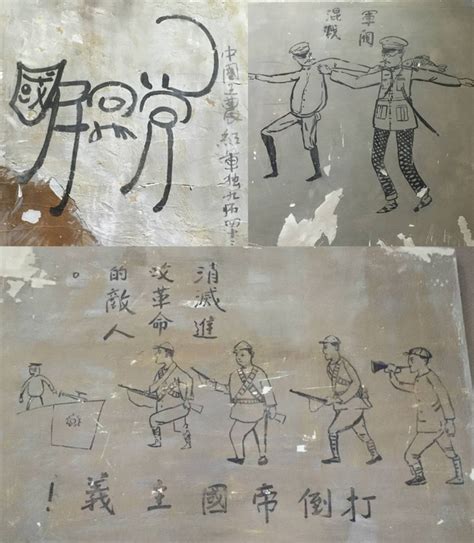 國民党
中國工農紅軍独九師四
軍閥
混戰
消滅進
攻革命
的敵人。
打倒帝國主義!